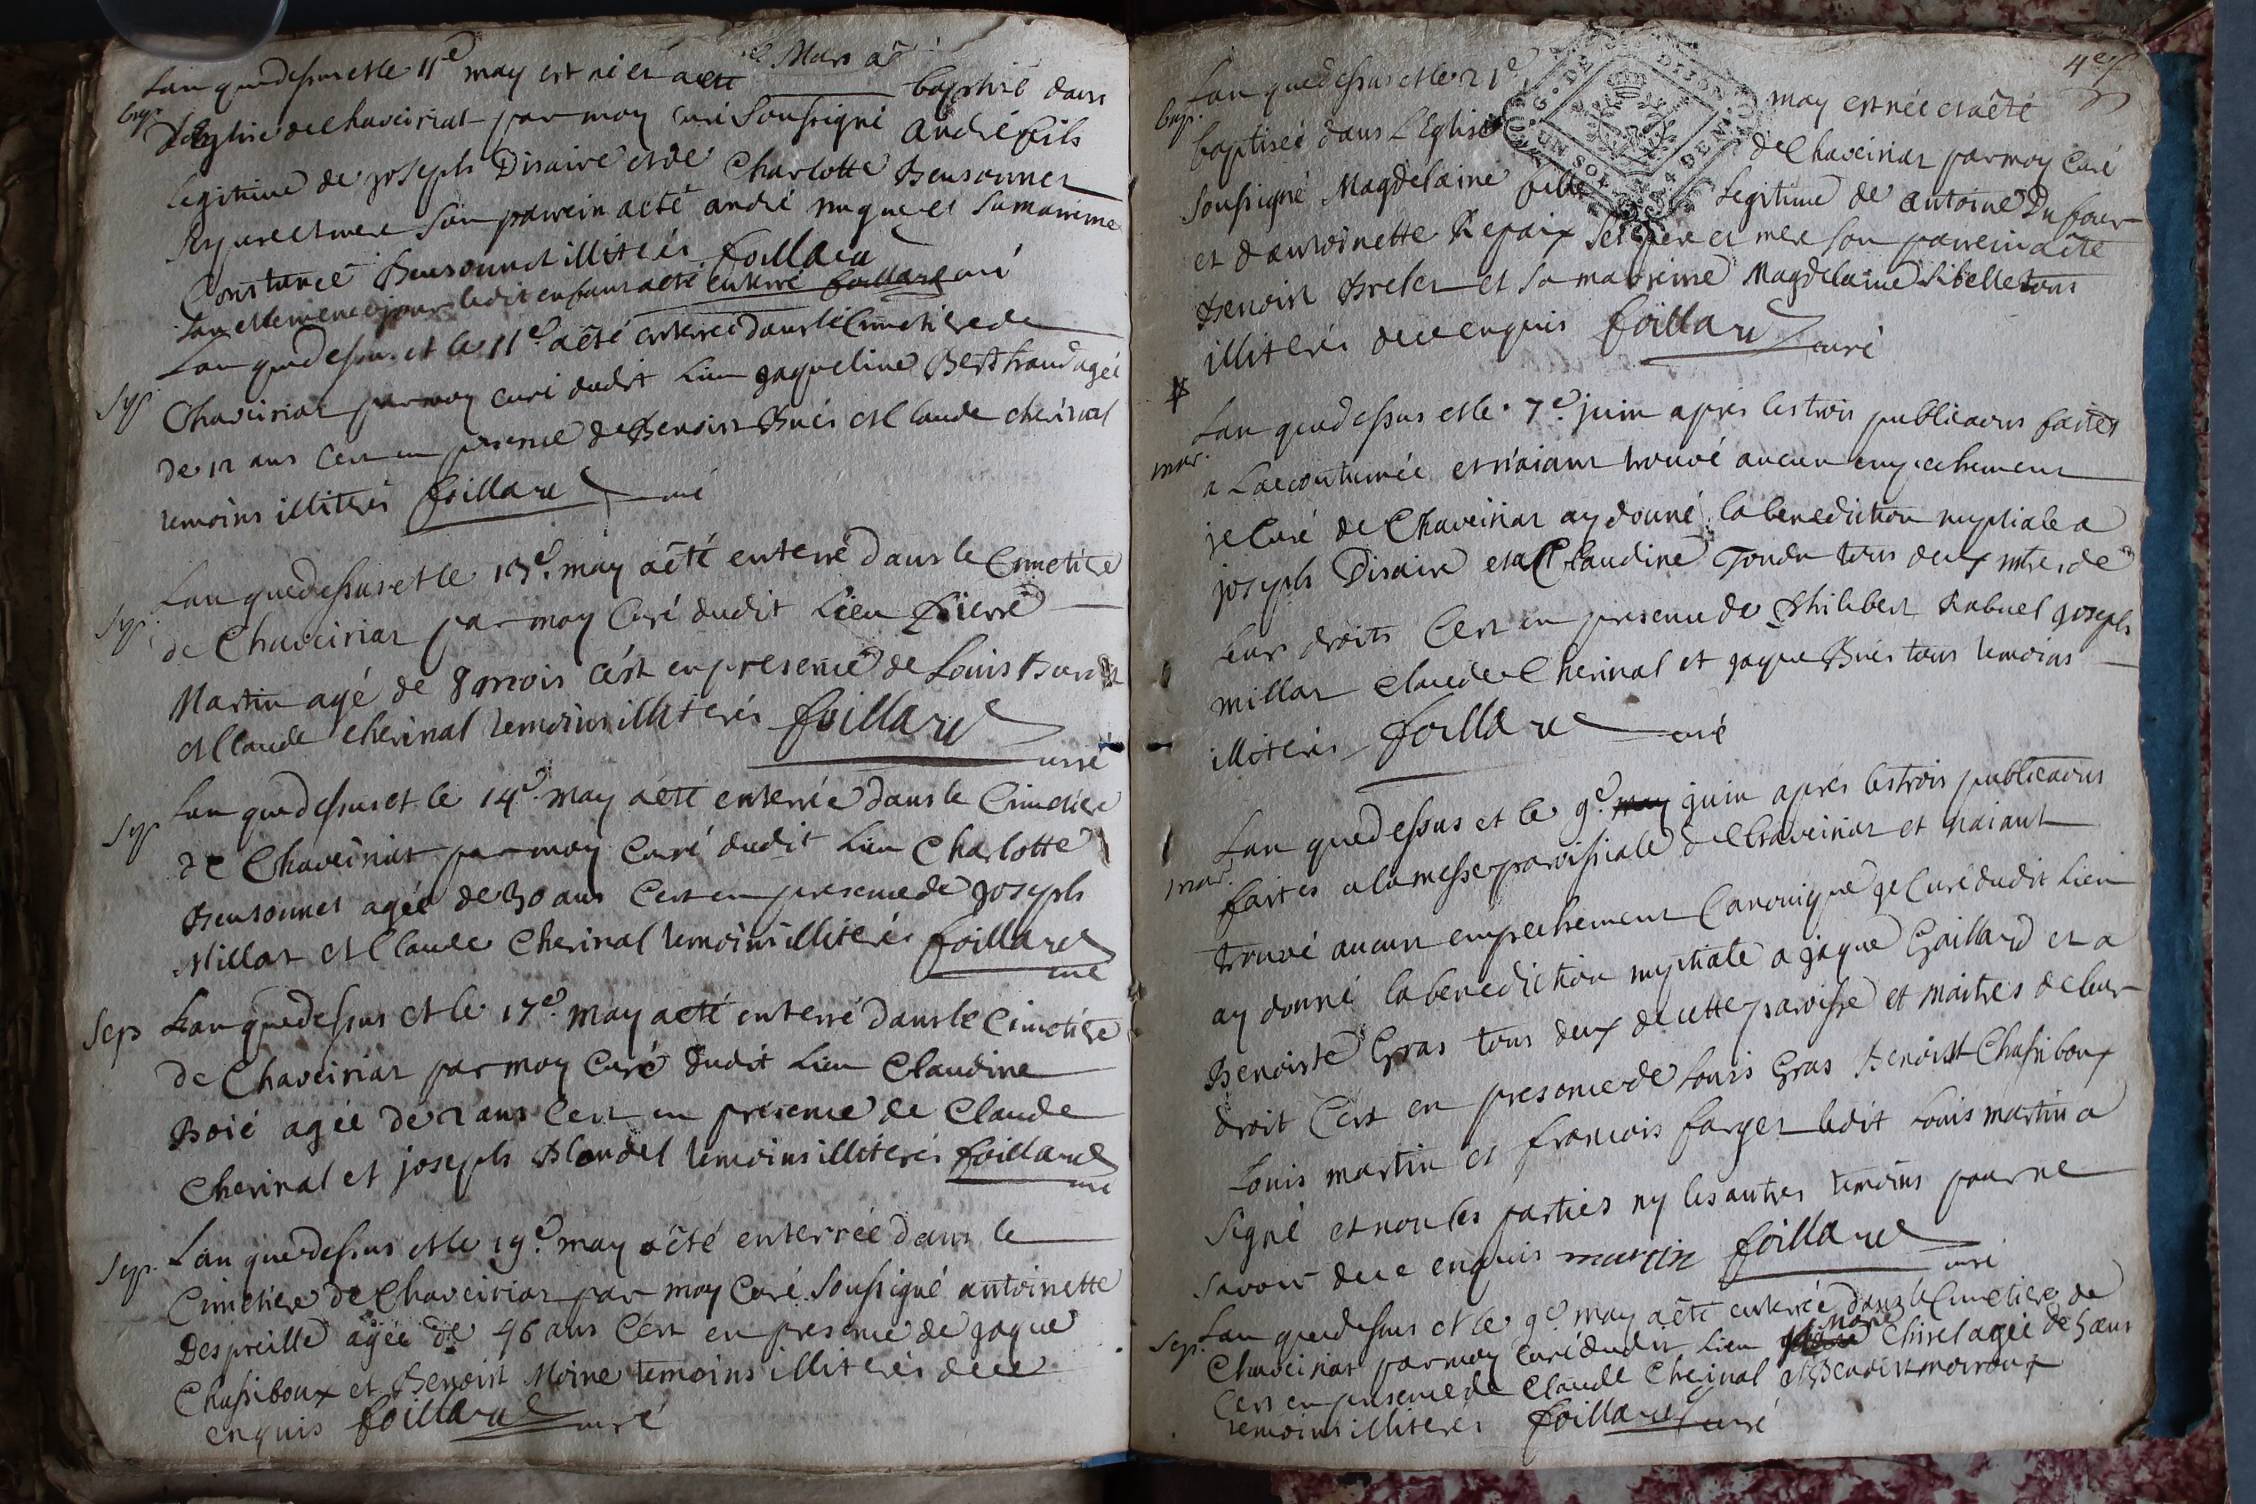 bap. Lan que dessus et le 11e may est né et a eté
baptisé dans
Leglise de Chaveiriat par moy curé soussigné andré fils
legitime de joseph Disaire et de Charlotte Bensonnet
ses pere et mere son parrein a eté andré et sa marreine
Constance Bensonnet illiterés foillard
Lan et le meme jour ledit enfant a eté enterré foillard curé
sep. Lan que dessus et le 11e a eté enterrée dans le Cimetiere de
Chaveiriat par moy curé dudit Lieu jaqueline agée
de 12 ans C'est en presence de Benoist Bués et Claude cherinal
temoins illiterés foillard curé
sep. Lan que dessus et le 13e. may a eté enterré dans le Cimetiere
de Chaveiriat par moy Curé dudit Lieu pierre
Martin agé de 8 mois c'est en presence de Louis
et Claude cherinal temoins illiterés foillard
curé
sep. Lan que dessus et le 14e. may a eté enterrée dans le Cimetiere
de Chaveiriat par moy Curé dudit Lieu Charlotte
Bensonnet agée de 30 ans C'est en presence de joseph
Millat et Claude Cherinal temoins illiterés foillard
curé
sep Lan que dessus et le 17e. may a eté enterré dans le Cimetiere
de Chaveiriat par moy Curé dudit Lieu Claudine
Boié agée de 2 ans C'est en presence de Claude
Cherinal et joseph Blondel temoins illiterés foillard
curé
sep. Lan que dessus et le 19e. may a eté enterrée dans le
Cimetiere de Chaveiriat par moy Curé soussigné antoinette
Despreille agée de 46 ans C'est en presence de jaque
Chassiboux et Benoist Moine temoins illiterés de ce
enquis foillard curé
bap. Lan que dessus et le 21e may est née et a eté
baptisée dans L'Eglise de Chaveiriat par moy Curé
soussigné Magdelaine fille legitime de antoine Dufour
et d'antoinette Repaix ses pere et mere son parrein a eté
Benoist Breler et sa marreine Magdelaine Sibelle tous
illiterés de ce enquis foillard curé
mar. Lan que dessus et le 7e. juin apres les trois publicaons faites
a Laccoutumée et n'aiant trouvé aucun empechement
je Curé de Chaveiriat ay donné la benediction nuptiale a
joseph Disaire et a Claudine tous deux mtres de
leur droits C'est en presence de philibert Rabuel joseph
millat Claude Cherinal et jaque Bués tous temoins
illiterés foillard curé
mar. Lan que dessus et le 9e. may juin aprés les trois publicaons
faites a la messe paroissiale de Chaveiriat et n'aiant
trouvé aucun empechement Canonique je Curé dudit Lieu
ay donné la benediction nuptiale a jaque Gaillard et a
Benoiste Gras tous deux de cette paroisse et maitres de leur
droit C'est en presence de Louis Gras Benoist Chassiboux
Louis martin et francois farget ledit Louis martin a
signé et non les parties ny les autres temoins pour ne
savoir de ce enquis martin foillard
curé
sep. Lan que dessus et le 9e. may a eté enterrée dans le Cimetiere de
Chaveiriat par moy curé dudit Lieu Marie Chirel agée de 5 ans
C'est en presence de Claude Cherinal et Benoist moiroux
temoins illiterés foillard curé